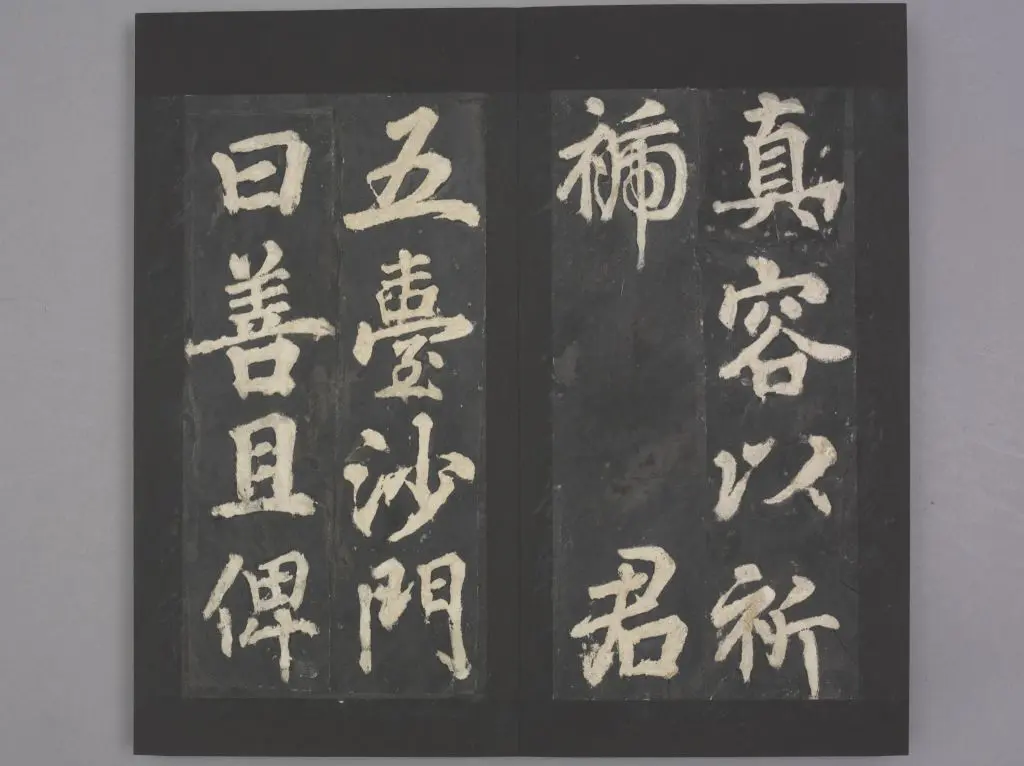 真容以祈
君
五臺沙門
曰善且俾